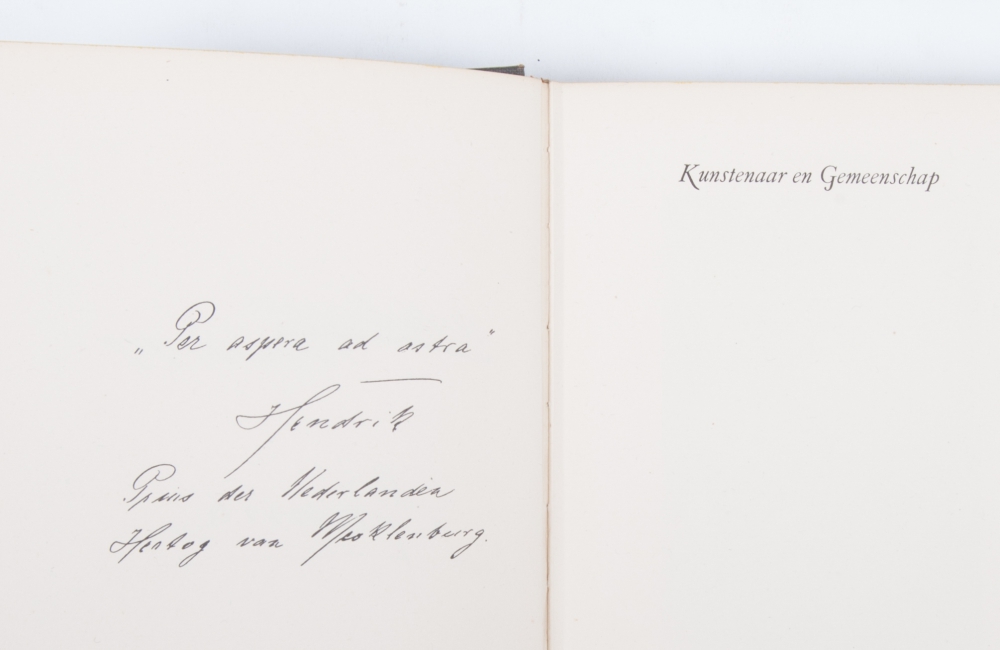 „Per aspera ad astra"
Hendrik
Prins der Nederlanden
Hertog van Mecklenburg.
Kunstenaar en Gemeenschap